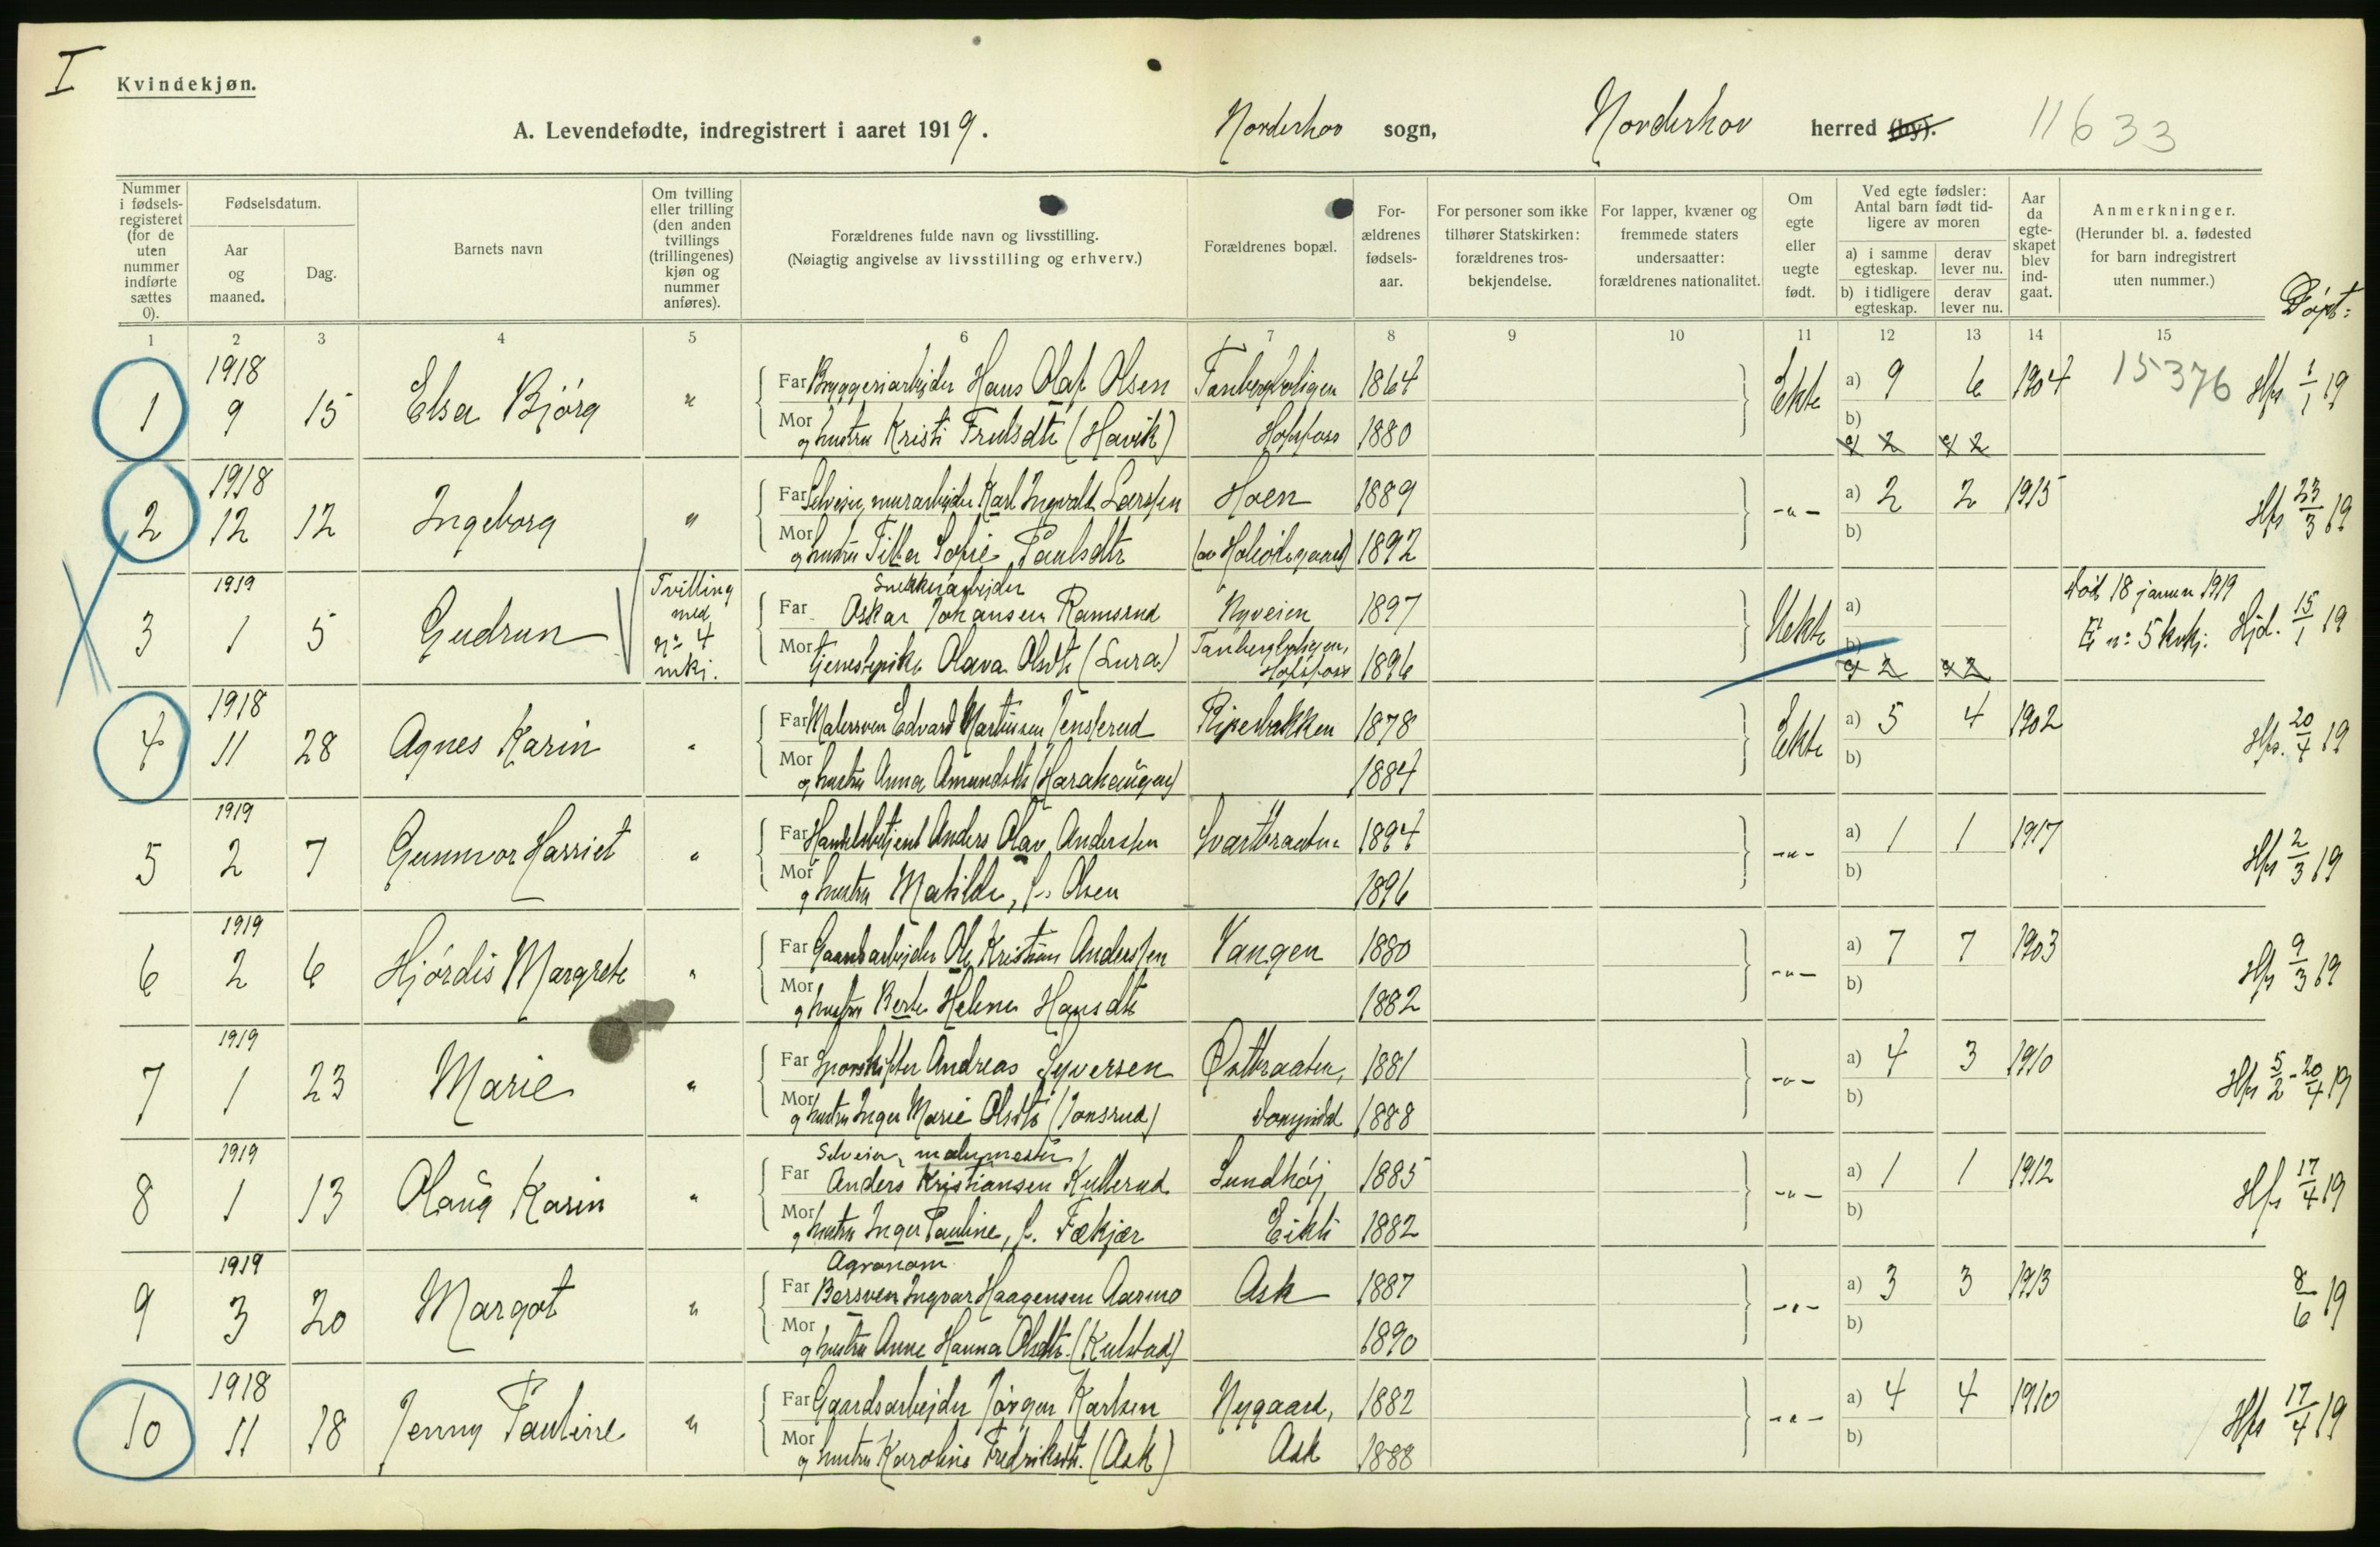 I
Kvindekjøn.
A. Levendefødte, indregistrert i aaret 1919. Norderhov sogn, Norderhov herred (by). 11633
Nummer i fødsels-registeret (for de uten nummer indførte sættes 0).
Fødselsdatum.
Aar og maaned.
Dag.
Barnets navn
Om tvilling eller trilling (den anden tvillings (trillingenes) kjøn og nummer anføres).
Forældrenes fulde navn og livsstilling.
(Nøiagtig angivelse av livsstilling og erhverv.)
Forældrenes bopæl.
For-ældrenes fødsels-aar.
For personer som ikke tilhører Statskirken: forældrenes tros-bekjendelse.
For lapper, kvæner og fremmede staters undersaatter: forældrenes nationalitet.
Om egte eller uegte født.
Ved egte fødsler: Antal barn født tid-ligere av moren
a) i samme egteskap. derav lever nu.
b) i tidligere egteskap. derav lever nu.
Aar da egte-skapet blev ind-gaat.
Anmerkninger.
(Herunder bl. a. fødested for barn indregistrert uten nummer.)
Døpt:
1 2 3 4 5 6 7 8 9 10 11 12 13 14 15
1918
1 9 15 Elsa Bjørg " Far Bryggeriarbeider Hans Olaf Olsen Tanbergboligen 1864 Ekte a) 9 6 1904 15376 Hfs 1/1 19
Mor og hustru Kristi Trulsdtr (Havik) Hofsfoss 1880 b)
2 2
1918
2 12 12 Ingeborg " Far Selveier, murarbeider Karl Ingvald Larssen Hoen 1889 -"- a) 2 2 1915 Hfs 23/3 19
Mor og hustru Tilla Sofie Paulsdtr 1892 b)
1919 Tvilling med No 4 mkj. Snekkerarbeider
3 1 5 Gudrun Far Oskar Johansen Ramsrud Nyveien 1897 Uekte a) Død 18 januar 1919
Mor tjenestepike Olava Olsdtr (Lura) Hofsfoss 1896 b) no 5 kvkj. Hjd. 15/1 19
2 2
1918
4 11 28 Agnes Karin " Far Malersven Edvard Martinsen Jensrud Ripesbakken 1878 Ekte a) 5 4 1902 Hfs. 20/4 19
Mor og hustru Anna Amundsdtr (Harahaugen) 1884 b)
1919
5 2 7 Gunnvor Harriet " Far Handelsbetjent Anders Olav Anderssen Svartbraaten 1894 -"- a) 1 1 1917 Hfs 2/3 19
Mor og hustru Matilde, f. Olsen 1896 b)
1919
6 2 6 Hjørdis Margrete " Far Gaardsarbeider Ole Kristian Anderssen Vangen 1880 -"- a) 7 7 1903 Hfs 9/3 19
Mor og hustru Berte Helene Hansdtr 1882 b)
1919
7 1 23 Marie " Far Sporskifter Andreas Syversen Østbraaten, 1881 -"- a) 4 3 1910 Hfs 5/2 - 20/4 19
Mor og hustru Inger Marie Olsdtr (Jonsrud) 1888 b)
1919 Selveier, malermester
8 1 13 Olaug Karin " Far Anders Kristiansen Kullerud Sundhøj, 1885 -"- a) 1 1 1912 Hfs 17/4 19
Mor og hustru Inger Pauline, f. Fækjær Eikli 1882 b)
1919 Agronom
9 3 20 Margot " Far Borsven Ingvar Haagensen Aasmo Ask 1887 -"- a) 3 3 1913 8/6 19
Mor og hustru Anne Hanna Olsdtr. (Kulstad) 1890 b)
1918
10 11 18 Jenny Pauline " Far Gaardsarbeider Jørgen Karlsen Nygaard, 1882 -"- a) 4 4 1910 Hfs 17/4 19
Mor og hustru Karoline Fredriksdtr. (Ask) Ask 1888 b)